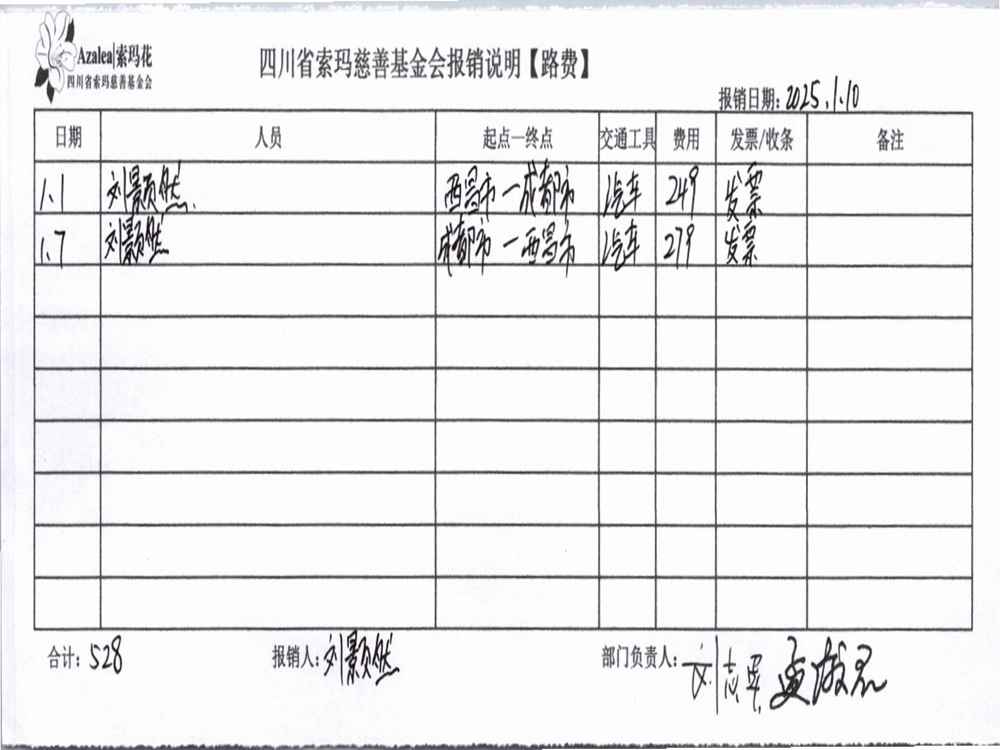 Azalea|索玛花
四川省索玛慈善基金会
四川省索玛慈善基金会报销说明【路费】
报销日期：2025.1.10
日期 人员 起点—终点 交通工具 费用 发票/收条 备注
1.1 刘颢然 西昌市—成都市 汽车 249 发票
1.7 刘颢然 成都市—西昌市 汽车 279 发票
合计：528 报销人：刘颢然 部门负责人：刘志军